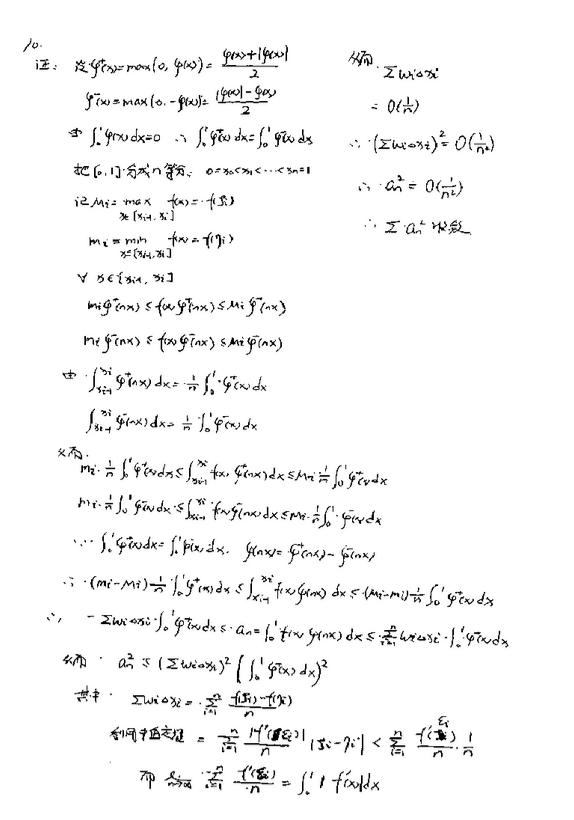 10.
证: 设 φ⁺(x)=max(0, φ(x)) = (φ(x)+|φ(x)|)/2
φ⁻(x)=max(0, -φ(x))= (|φ(x)|-φ(x))/2
由 ∫₀¹φ(x)dx=0 ∴ ∫₀¹φ⁺(x)dx=∫₀¹φ⁻(x)dx
把[0,1]分成n等分: 0=x₀<x₁<…<xₙ=1
记 Mᵢ= max_{x∈[xᵢ₋₁,xᵢ]} f(x)=f(ξᵢ)
mᵢ=min_{x∈[xᵢ₋₁,xᵢ]} f(x)=f(ηᵢ)
∀ x∈[xᵢ₋₁, xᵢ]
mᵢφ⁺(nx)≤f(x)φ⁺(nx)≤Mᵢφ⁺(nx)
mᵢφ⁻(nx)≤f(x)φ⁻(nx)≤Mᵢφ⁻(nx)
由 ∫_{xᵢ₋₁}^{xᵢ}φ⁺(nx)dx=1/n ∫₀¹φ⁺(x)dx
∫_{xᵢ₋₁}^{xᵢ}φ⁻(nx)dx=1/n ∫₀¹φ⁻(x)dx
从而
mᵢ·1/n ∫₀¹φ⁺(x)dx≤∫_{xᵢ₋₁}^{xᵢ}f(x)φ⁺(nx)dx≤Mᵢ·1/n ∫₀¹φ⁺(x)dx
mᵢ·1/n ∫₀¹φ⁻(x)dx≤∫_{xᵢ₋₁}^{xᵢ}f(x)φ⁻(nx)dx≤Mᵢ·1/n ∫₀¹φ⁻(x)dx
∵ ∫₀¹φ⁺(x)dx=∫₀¹φ⁻(x)dx. φ(nx)=φ⁺(nx)-φ⁻(nx)
∴ (mᵢ-Mᵢ)1/n ∫₀¹φ⁺(x)dx≤∫_{xᵢ₋₁}^{xᵢ}f(x)φ(nx)dx≤(Mᵢ-mᵢ)1/n ∫₀¹φ⁺(x)dx
∴ -Σωᵢ△xᵢ·∫₀¹φ⁺(x)dx≤aₙ=∫₀¹f(x)φ(nx)dx≤Σ_{i=1}^{n}ωᵢ△xᵢ·∫₀¹φ⁺(x)dx
从而 aₙ²≤(Σωᵢ△xᵢ)²(∫₀¹φ⁺(x)dx)²
其中 Σωᵢ△xᵢ=Σ_{i=1}^{n} (f(ξᵢ)-f(ηᵢ))/n
利用中值定理 = Σ_{i=1}^{n} |f'(εᵢ)|/n |ξᵢ-ηᵢ| < Σ_{i=1}^{n} f'(εᵢ)/n · 1/n
而 lim_{n→∞} Σ_{i=1}^{n} f'(εᵢ)/n = ∫₀¹ f'(x)dx
从而 Σωᵢ△xᵢ
= O(1/n)
∴ (Σωᵢ△xᵢ)²=O(1/n²)
∴ aₙ²=O(1/n²)
∴ Σaₙ² 收敛